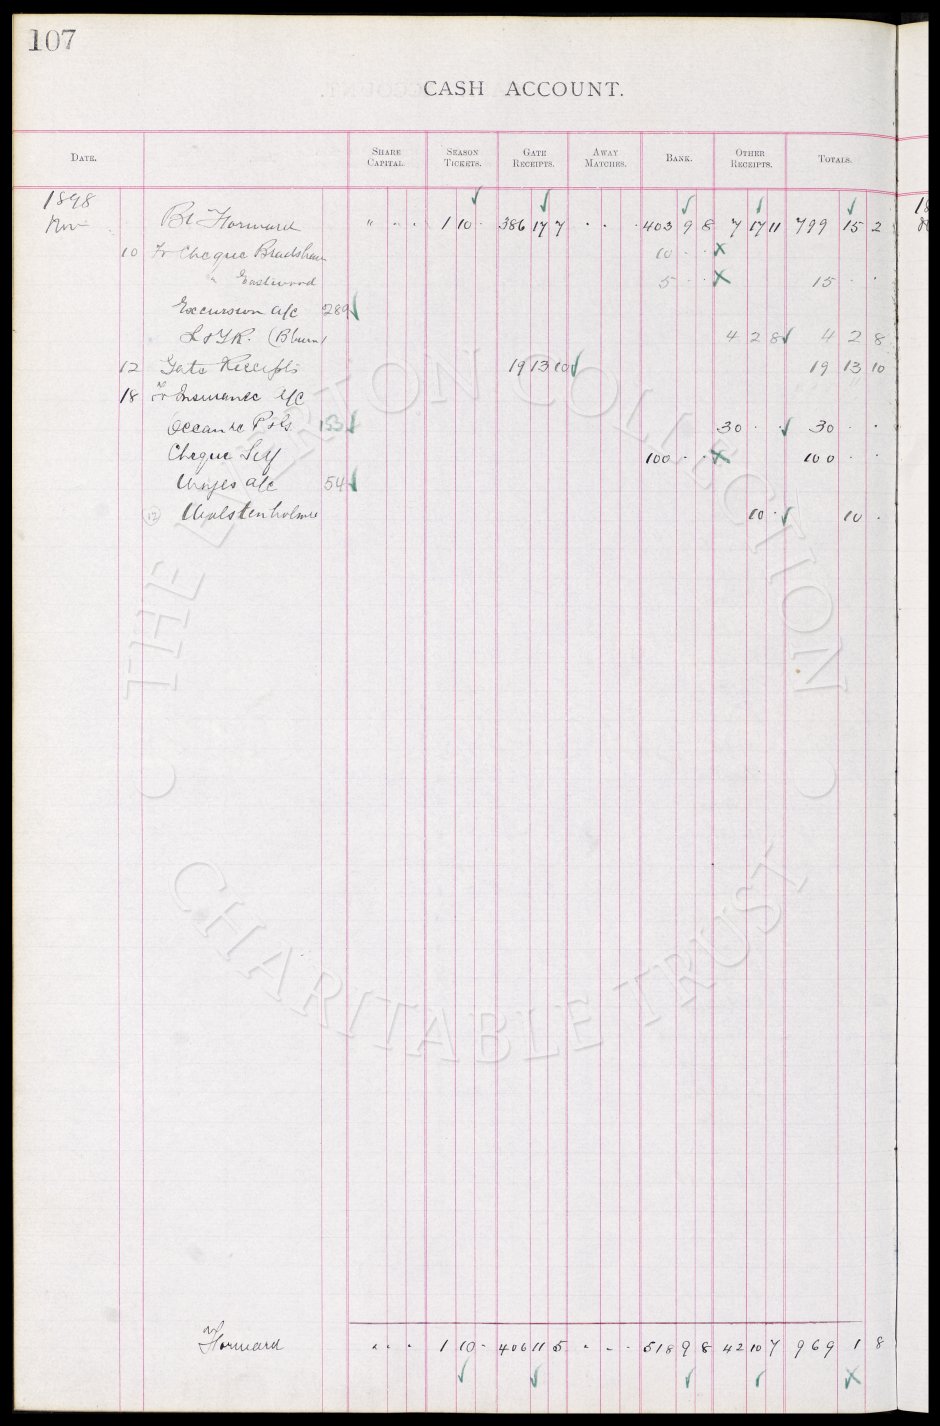 107
CASH ACCOUNT.
DATE. SHARE CAPITAL. SEASON TICKETS. GATE RECEIPTS. AWAY MATCHES. BANK. OTHER RECEIPTS. TOTALS.
1898
Nov Bt Forward " · · 1 10 · 386 17 7 · · · 403 9 8 7 17 11 799 15 2
10 To Cheque Bradshaw 10 · ·
" Eastwood 5 · · 15 · ·
Excursion a/c 289
L & Y R. (B'burn) 4 2 8 4 2 8
12 Gate Receipts 19 13 10 19 13 10
18 To Insurance a/c
Oceanic 153 30 · · 30 · ·
Cheque Self 100 · · 100 · ·
Wages a/c 54
(12) Wolstenholme 10 · 10 ·
Forward " · · 1 10 · 406 11 5 · · · 518 9 8 42 10 7 969 1 8
THE EVERTON COLLECTION
CHARITABLE TRUST